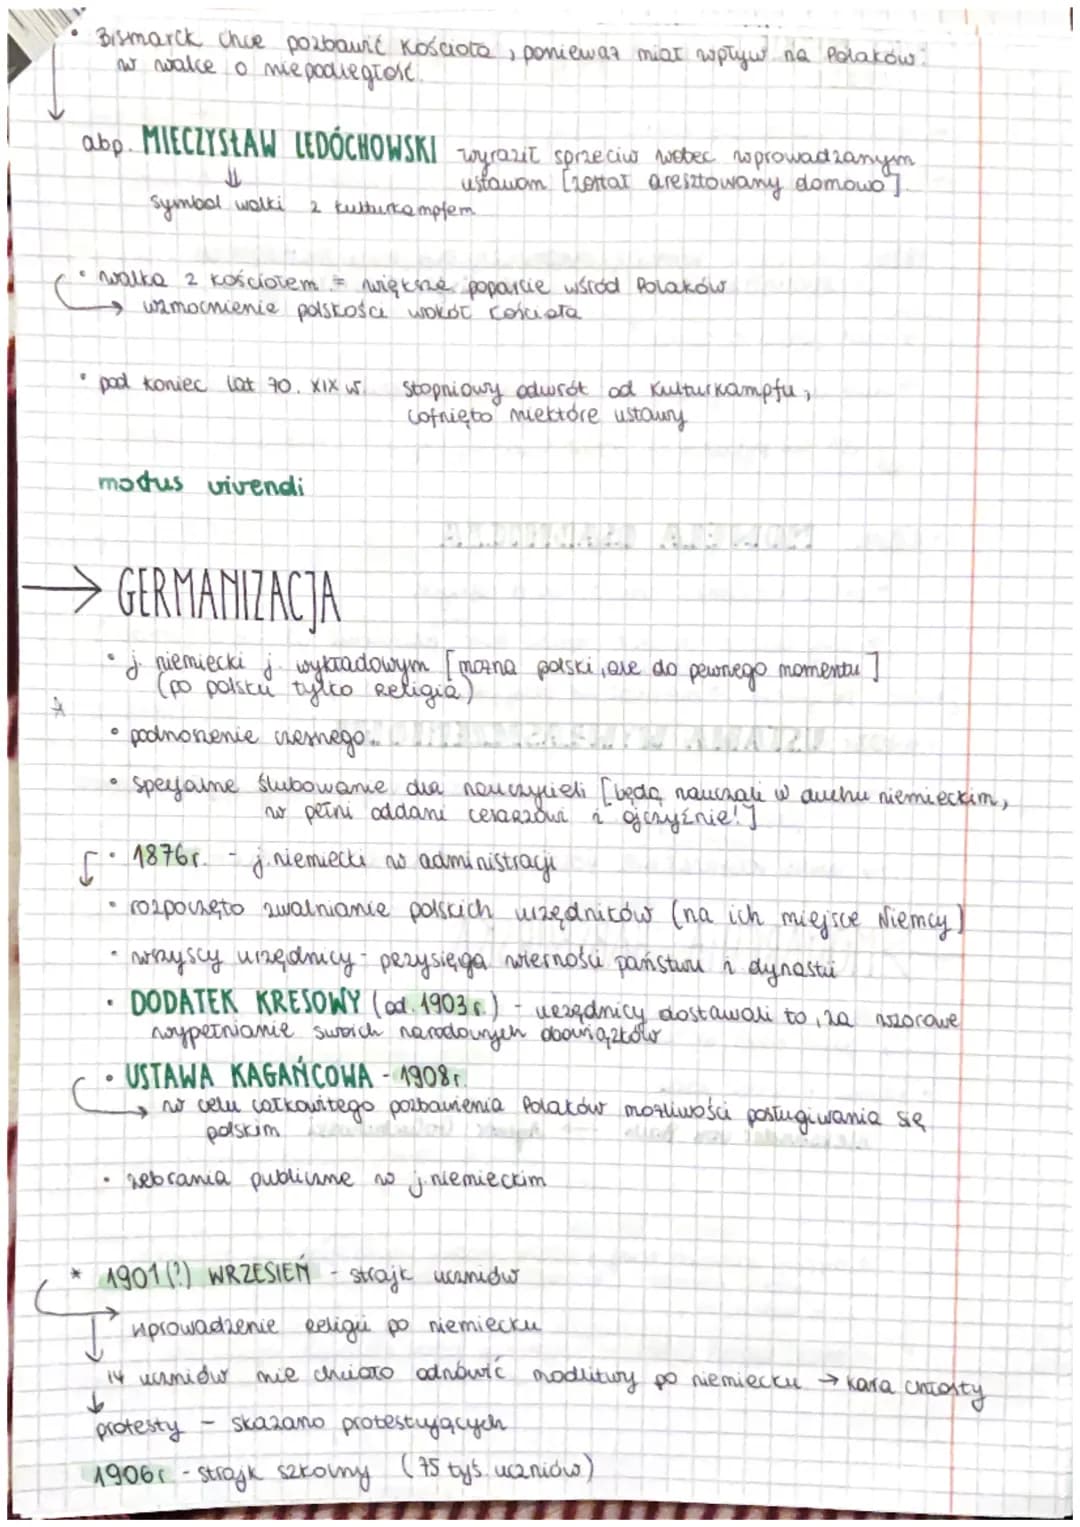 • Bismarck chce pozbawić kościoła, ponieważ miał wpływ na Polaków
w walce o niepodległość.
abp. MIECZYSŁAW LEDÓCHOWSKI wyraził sprzeciw wobec wprowadzanym
ustawom [został aresztowany domowo].
symbol walki z kulturkampfem
• walka z kościołem = większe poparcie wśród Polaków
→ wzmocnienie polskości wokół kościoła
• pod koniec lat 70. XIX w. stopniowy odwrót od kulturkampfu,
cofnięto niektóre ustawy
modus vivendi
→ GERMANIZACJA
• j. niemiecki j. wykładowym [można polski, ale do pewnego momentu]
(po polsku tylko religia)
• podnoszenie czesnego
• specjalne ślubowanie dla nauczycieli [będą nauczali w duchu niemieckim,
w pełni oddani cesarzowi i ojczyźnie!]
• 1876r. - j. niemiecki w administracji
• rozpoczęto zwalnianie polskich urzędników (na ich miejsce Niemcy)
• wszyscy urzędnicy - przysięga wierności państwu i dynastii
• DODATEK KRESOWY (od. 1903r.) - urzędnicy dostawali to, za wzorowe
wypełnianie swoich narodowych obowiązków
• USTAWA KAGAŃCOWA - 1908r.
→ w celu całkowitego pozbawienia Polaków możliwości posługiwania się
polskim
• zebrania publiczne w j. niemieckim
* 1901(?) WRZESIEŃ - strajk uczniów
wprowadzenie religii po niemiecku
14 uczniów nie chciało odmówić modlitwy po niemiecku → kara chłosty
protesty - skazano protestujących
1906r - strajk szkolny (75 tyś. uczniów)